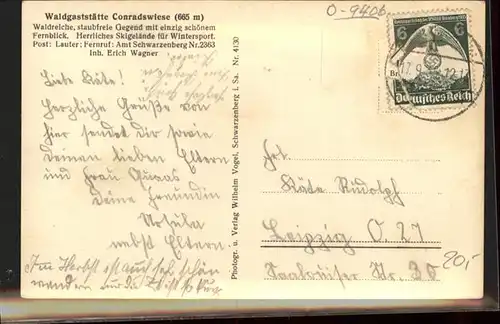 Waldgaststätte Conradswiese (665 m)
Waldreiche, staubfreie Gegend mit einzig schönem
Fernblick. Herrliches Skigelände für Wintersport.
Post: Lauter; Fernruf: Amt Schwarzenberg Nr. 2363
Inh. Erich Wagner
O-940b
6 6
Deutsches Reich
Liebe Käte!
Herzliche Grüße von
hier sendet dir sowie
deinen lieben Eltern
und Frau
Deine Freundin
Ursula
nebst Eltern.
Im Herbst ist auch sehr schön
wandern
Photogr. u. Verlag Wilhelm Vogel, Schwarzenberg i. Sa. Nr. 4130
Frl.
Käte Rudolph
Leipzig O. 27
Nr. 30
20,-